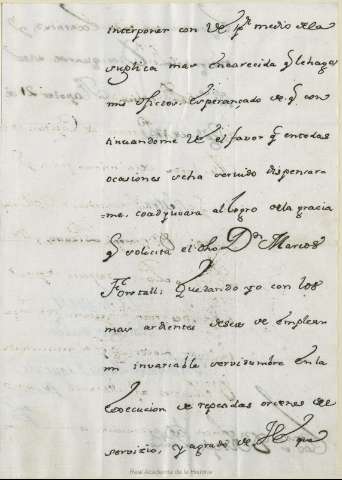 interponer con Ve pr medio dela
suplica mas encarecida qe le hagas
mis oficios. Esperançado de qe con
tinuandome Ve el favor qe en todas
ocasiones se ha servido dispensar
=me, coadyuvara al logro de la gracia
qe solicita el dho Dn Marcos
Forstall; Quedando yo con los
mas ardientes deseos de emplear
mi invariable servidumbre en la
execucion de repetidas ordenes del
servicio, y agrado de Ve que
Real Academia de la Historia